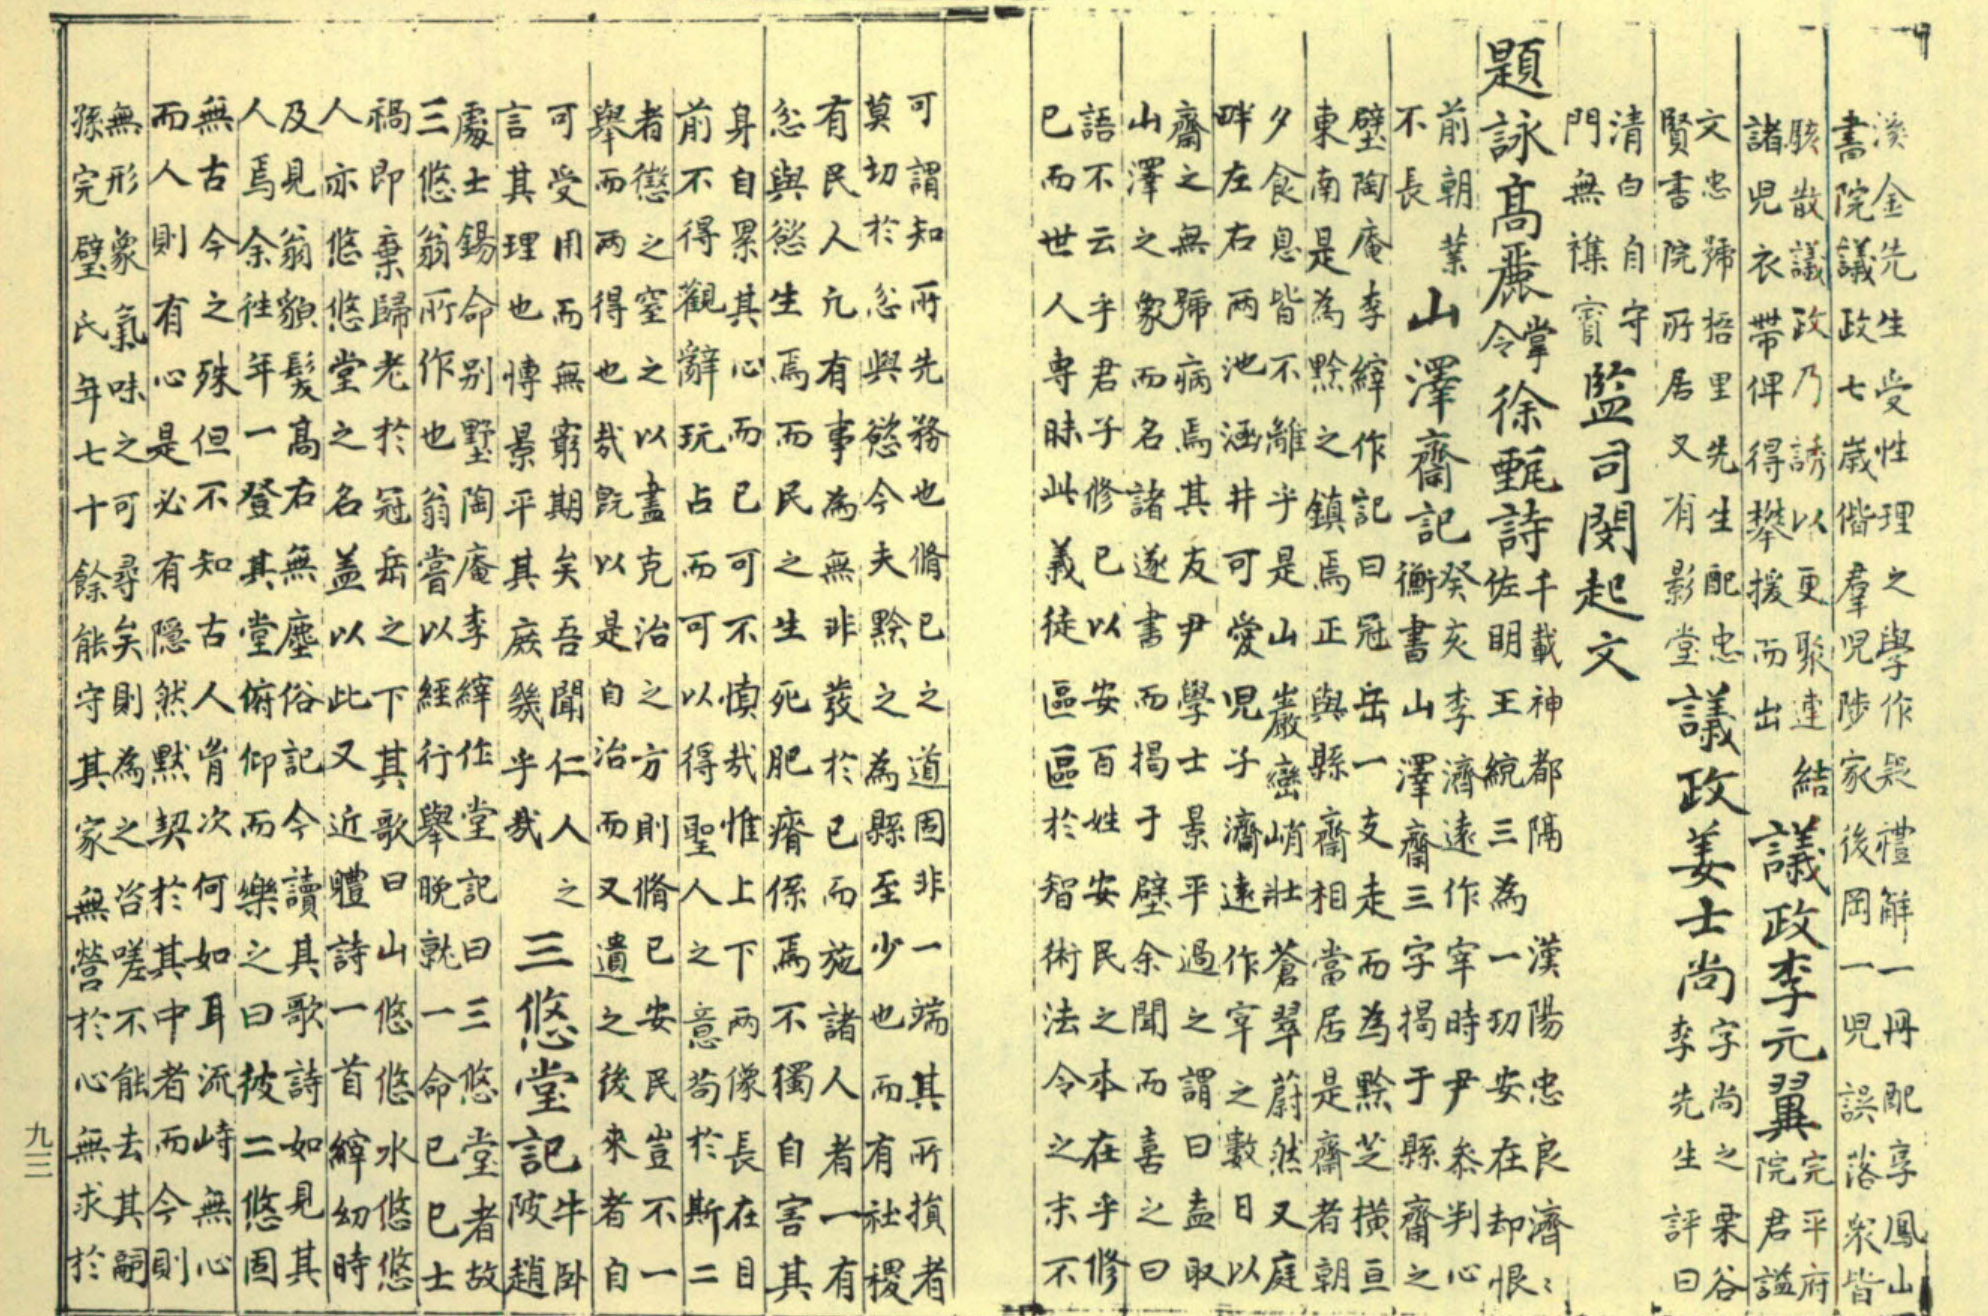 溪金先生受性理之學作疑禮解一冊配享鳳山
書院議政七歲偕羣兒陟家後岡一兒誤落衆皆
駭散議政乃誘以更聚連結
諸兒衣帶俾得攀援而出
議政李元翼
完平府
院君謚
文忠號梧里先生配忠
賢書院所居又有影堂
議政姜士尚
字尚之栗谷
李先生評曰
清白自守
門無襍賓
監司閔起文
題詠高麗掌令徐甄詩
千載神都隔漢陽忠良濟〻
佐明王統三為一功安在却恨
前朝業
不長
山澤齋記
癸亥李濟遠作宰時尹叅判心
衡書山澤齋三字揭于縣齋之
壁陶庵李縡作記曰冠岳一支走而為黔芝橫亘
東南是為黔之鎮焉正與縣齋相當居是齋者朝
夕食息皆不離乎是山巖巒峭壯蒼翠蔚然又庭
畔左右兩池涵井可愛兒子濟遠作宰之數日以
齋之無號病焉其友尹學士景平過之謂曰盍取
山澤之象而名諸遂書而揭于壁余聞而喜之曰
語不云乎君子修已以安百姓安民之本在乎修
已而世人專昧此義徒區區於智術法令之末不
可謂知所先務也脩已之道固非一端其所損者
莫切於忿與慾今夫黔之為縣至少也而有社稷
有民人凢有事為無非發於已而施諸人者一有
忿與慾生焉而民之生死肥瘠係焉不獨自害其
身自累其心而已可不慎哉惟上下兩像長在目
前不得觀辭玩占而可以得聖人之意苟於斯二
者懲之窒之以盡克治之方則脩已安民豈不一
舉而兩得也哉旣以是自治而又遺之後來者自
可受用而無窮期矣吾聞仁人之
言其理也博景平其庶幾乎哉
三悠堂記
牛卧
陂趙
處士錫命別墅陶庵李縡作堂記曰三悠堂者故
三悠翁所作也翁嘗以經行舉晚就一命已巳士
禍即棄歸老於冠岳之下其歌曰山悠悠水悠悠
人亦悠悠堂之名盖以此又近軆詩一首縡幼時
及見翁貌髮高右無塵俗記今讀其歌詩如見其
人焉余往年一登其堂俯仰而樂之曰彼二悠固
無古今之殊但不知古人胷次何如耳流峙無心
而人則有心是必有隱然默契於其中者而今則
無形象氣味之可尋矣則為之咨嗟不能去其嗣
孫完璧氏年七十餘能守其家無營於心無求於
九三